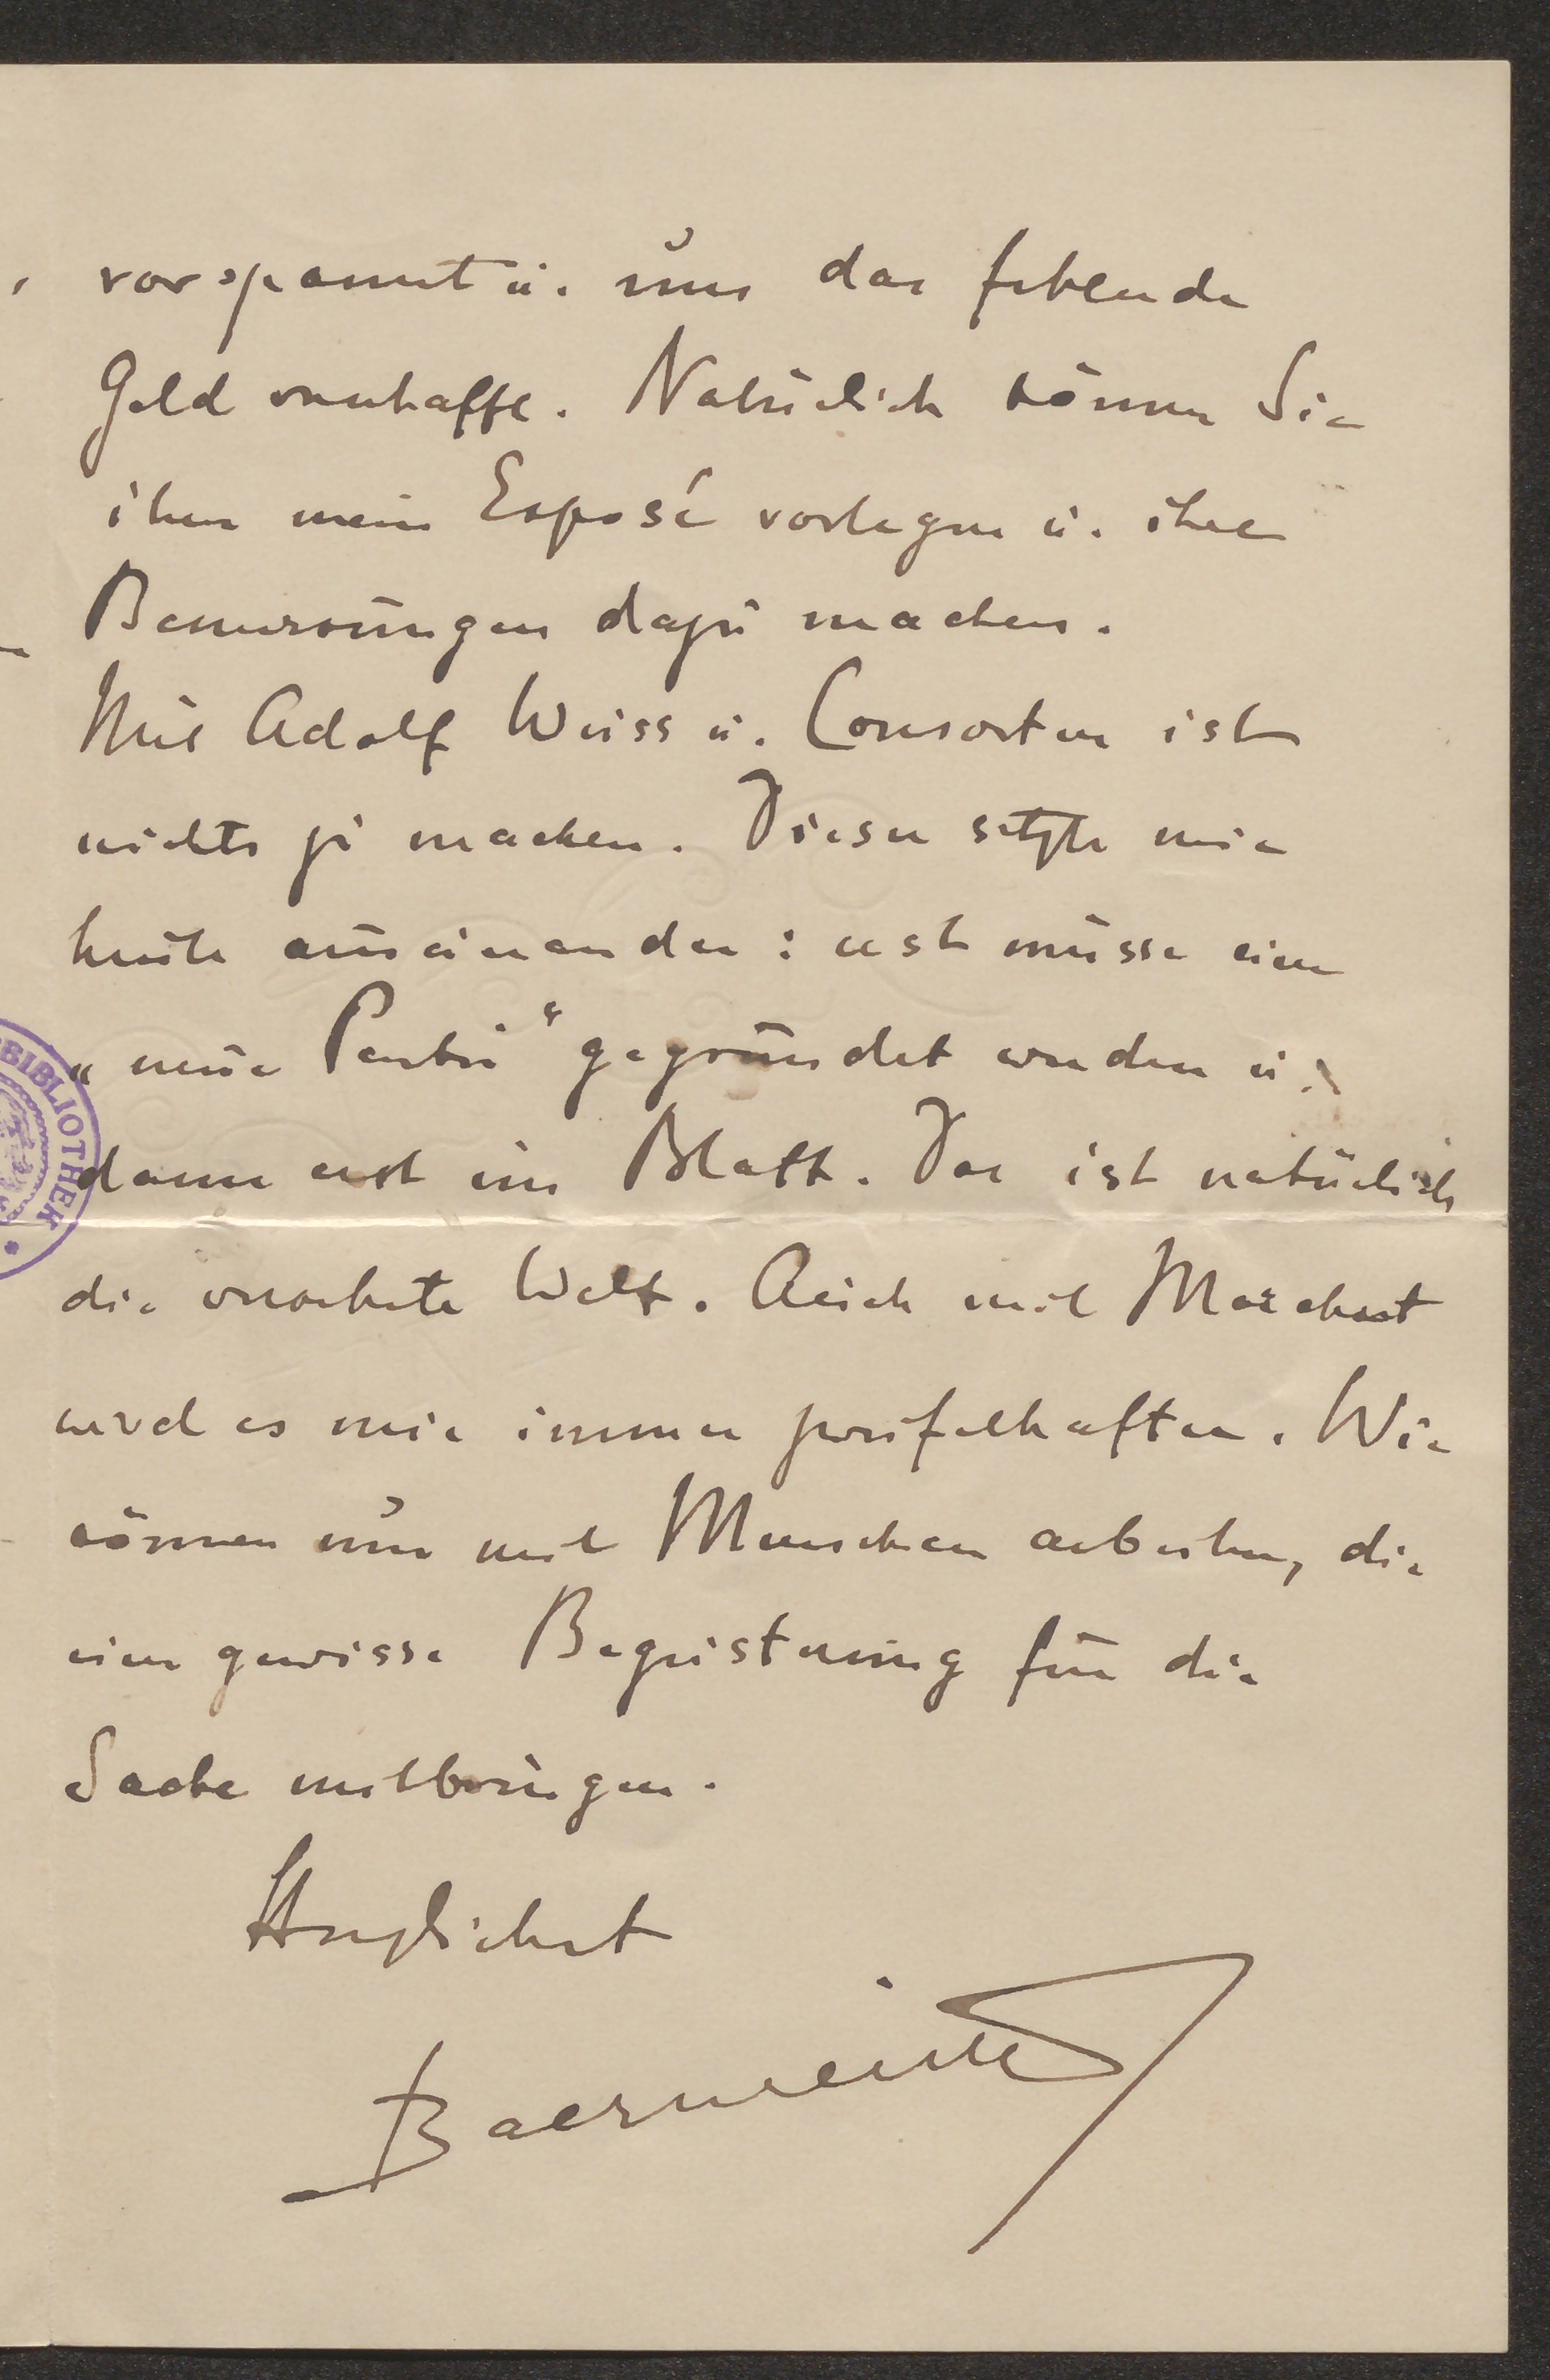 vorspannt u. uns das fehlende
Geld verschaffe. Natürlich können Sie
ihm mein Exposé vorlegen u. ihre
Bemerkungen dazu machen.
Mit Adolf Weiss u. Consorten ist
nichts zu machen. Dieser setzte mir
heute auseinander: erst müsse eine
„neue Partei“ gegründet werden u.
dann erst ein Blatt. Das ist natürlich
die verkehrte Welt. Auch mit
wird es mir immer zweifelhafter. Wir
können nur mit Menschen arbeiten, die
eine gewisse Begeisterung für die
Sache mitbringen.
Herzlichst
BIBLIOTHEK